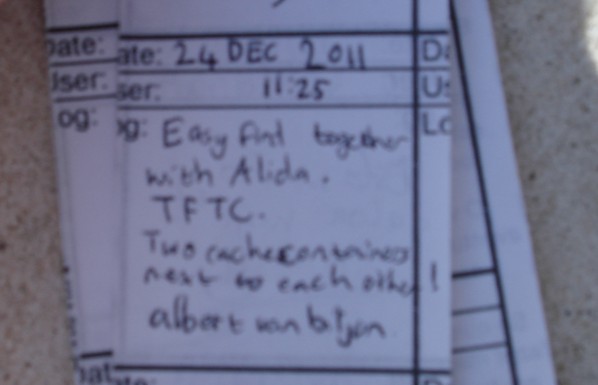 Date: Date: 24 DEC 2011 Da
User: User: 11:25 Us
Log: Log: Easy find together Lo
with Alida.
TFTC.
Two cache containers
next to each other!
albert van biljon